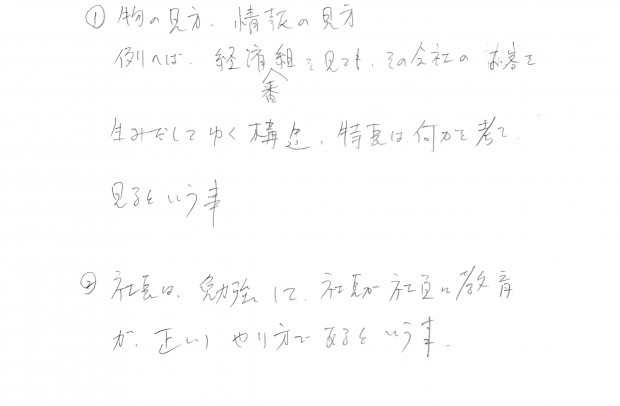 ① 物の見方、情報の見方
例へば、経済番組を見ても、その会社のお客を
生みだしてゆく構造、特長は何かと考て、
見るという事
② 社長は、勉強して、社長が社員に教育
が、正しいやり方であるという事。